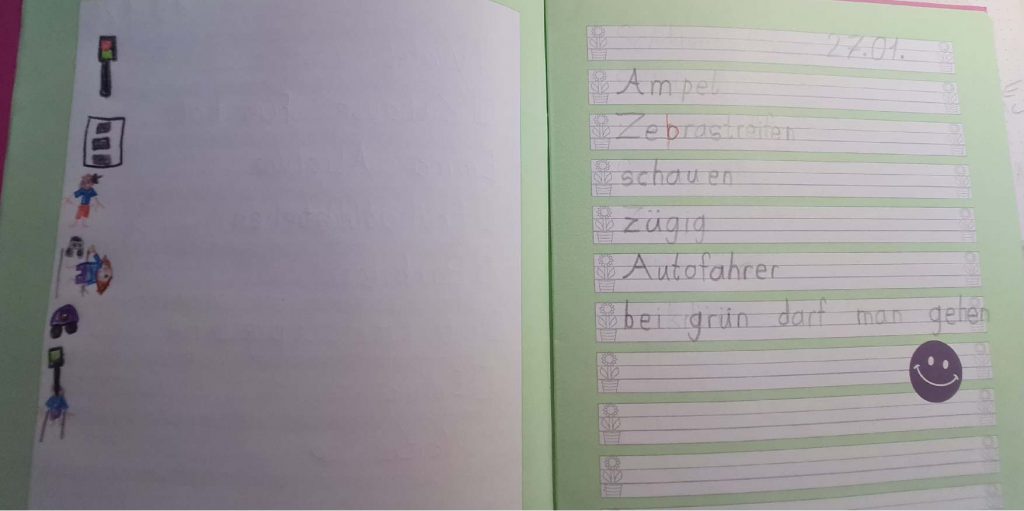 27.01.
Ampel
Zebrastreifen
schauen
zügig
Autofahrer
bei grün darf man gehen